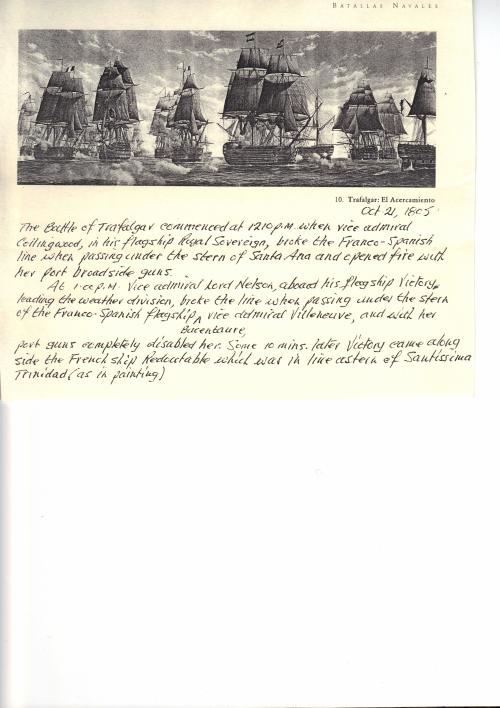 BATALLAS NAVALES
10. Trafalgar: El Acercamiento
Oct 21, 1805.
The Battle of Trafalgar commenced at 1210 p.m. when vice admiral
Collingwood, in his flagship Royal Sovereign, broke the Franco-Spanish
line when passing under the stern of Santa Ana and opened fire with
her port broadside guns.
At 1.00 p.m. Vice admiral Lord Nelson, aboad his flagship Victory,
leading the weather division, broke the line when passing under the stern
of the Franco-Spanish flagship ^ vice admiral Villeneuve, and with her
Bucentaure,
port guns completely disabled her. Some 10 mins. later Victory came along
side the French ship Redoutable which was in line astern of Santissima
Trinidad (as in painting)